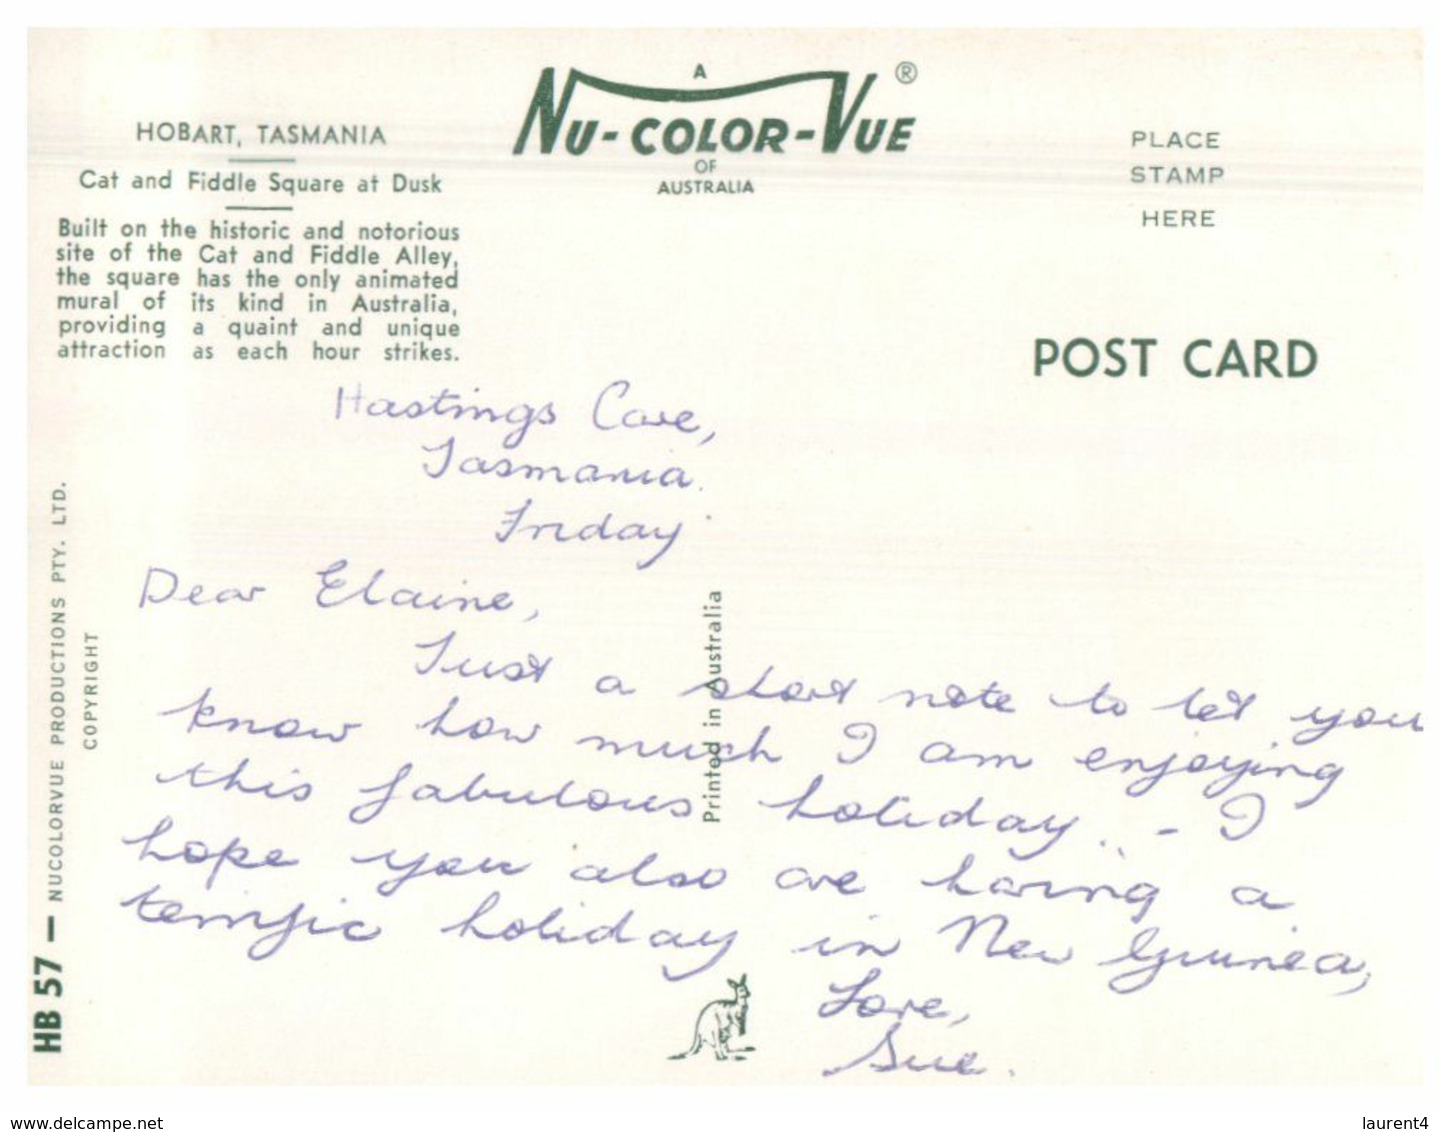 A
NU-COLOR-VUE ®
OF
AUSTRALIA
HOBART, TASMANIA
Cat and Fiddle Square at Dusk
Built on the historic and notorious
site of the Cat and Fiddle Alley,
the square has the only animated
mural of its kind in Australia,
providing a quaint and unique
attraction as each hour strikes.
PLACE
STAMP
HERE
POST CARD
Hastings Cave,
Tasmania.
Friday.
Dear Elaine,
Just a short note to let you
know how much I am enjoying
this fabulous holiday. - I
hope you also are having a
terrific holiday in New Guinea,
Love,
Sue.
Printed in Australia
HB 57 — NUCOLORVUE PRODUCTIONS PTY. LTD.
COPYRIGHT
www.delcampe.net
laurent4